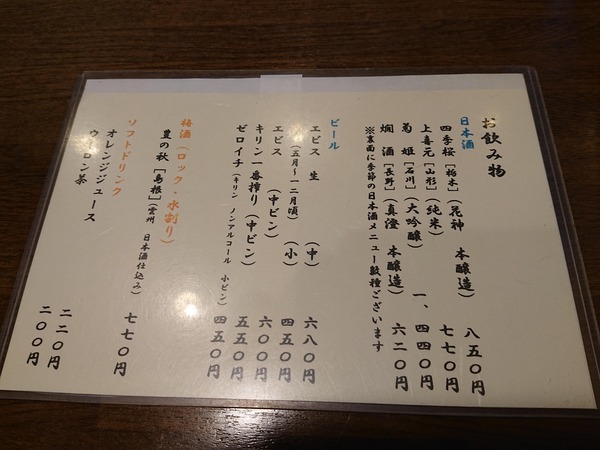 お飲み物
日本酒
四季桜[栃木](花神 本醸造) 八五〇円
上喜元[山形](純米) 七七〇円
菊 姫[石川](大吟醸) 一、四四〇円
燗 酒[長野](真澄 本醸造) 六二〇円
※裏面に季節の日本酒メニュー数種ございます
ビール
エビス 生 (中) 六八〇円
(五月～一二月頃) (小) 四五〇円
エビス (中ビン) 六〇〇円
キリン一番搾り(中ビン) 五五〇円
ゼロイチ(キリン ノンアルコール 小ビン) 四五〇円
梅酒(ロック・水割り)
豊の秋[島根](雲州 日本酒仕込み) 七七〇円
ソフトドリンク
オレンジジュース 二二〇円
ウーロン茶 二〇〇円